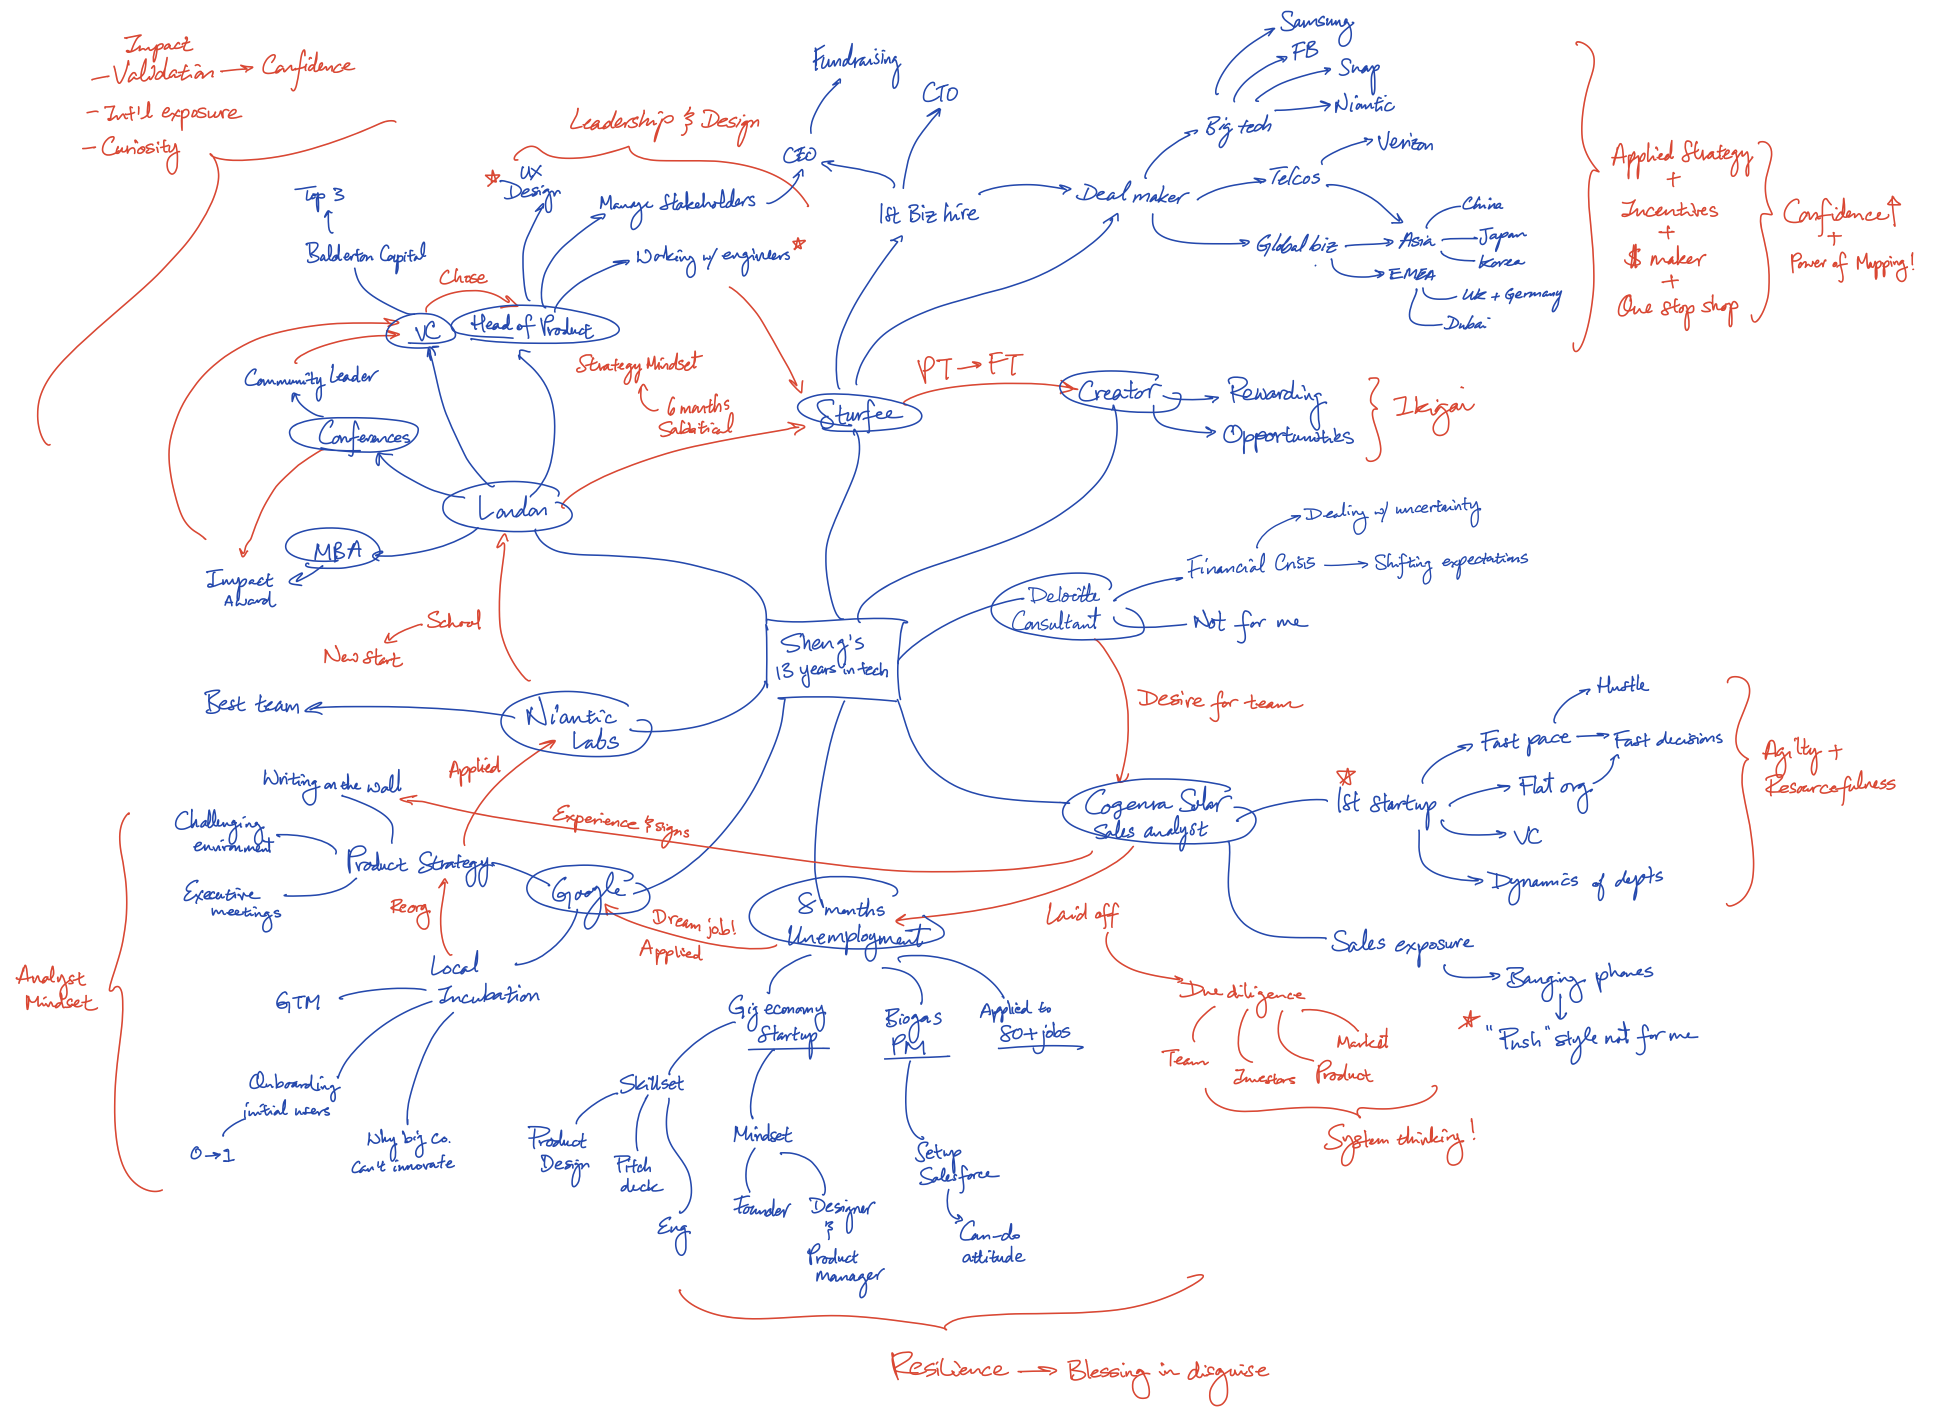 Impact
- Validation → Confidence
- Int'l exposure
- Curiosity
Leadership & Design
Fundraising
CTO
CEO
1st Biz hire
UX
Design
Manage Stakeholders
Working w/ engineers
Top 3
Balderton Capital
Chose
VC
Head of Product
Community Leader
Conferences
London
MBA
Impact
Award
Strategy Mindset
6 months
Sabbatical
Sturfee
PT → FT
Creator
Rewarding
Opportunities
Ikigai
Deal maker
Big tech
Samsung
FB
Snap
Niantic
Telcos
Verizon
Global biz
Asia
China
Japan
Korea
EMEA
UK + Germany
Dubai
Applied Strategy
+
Incentives
+
$ maker
+
One stop shop
Confidence ↑
+
Power of Mapping!
Deloitte
Consultant
Financial Crisis
Dealing w/ uncertainty
Shifting expectations
Not for me
Desire for team
Sheng's
13 years in tech
School
New start
Niantic
Labs
Best team
Applied
Writing on the wall
Challenging
environment
Product Strategy
Executive
meetings
Reorg
Google
Experience & signs
Dream job!
Applied
Analyst
Mindset
Local
Incubation
GTM
Onboarding
initial users
0 → 1
Why big co.
can't innovate
8 months
Unemployment
Gig economy
Startup
Biogas
PM
Applied to
80+ jobs
Skillset
Product
Design
Pitch
deck
Eng
Mindset
Founder
Designer
&
Product
manager
Setup
Salesforce
Can-do
attitude
Resilience → Blessing in disguise
Cogenra Solar
Sales analyst
1st startup
Fast pace
Hustle
Fast decisions
Flat org
VC
Dynamics of depts
Agilty +
Resourcefulness
Sales exposure
Banging phones
"Push" style not for me
Laid off
Due diligence
Team
Investors
Product
Market
System thinking!